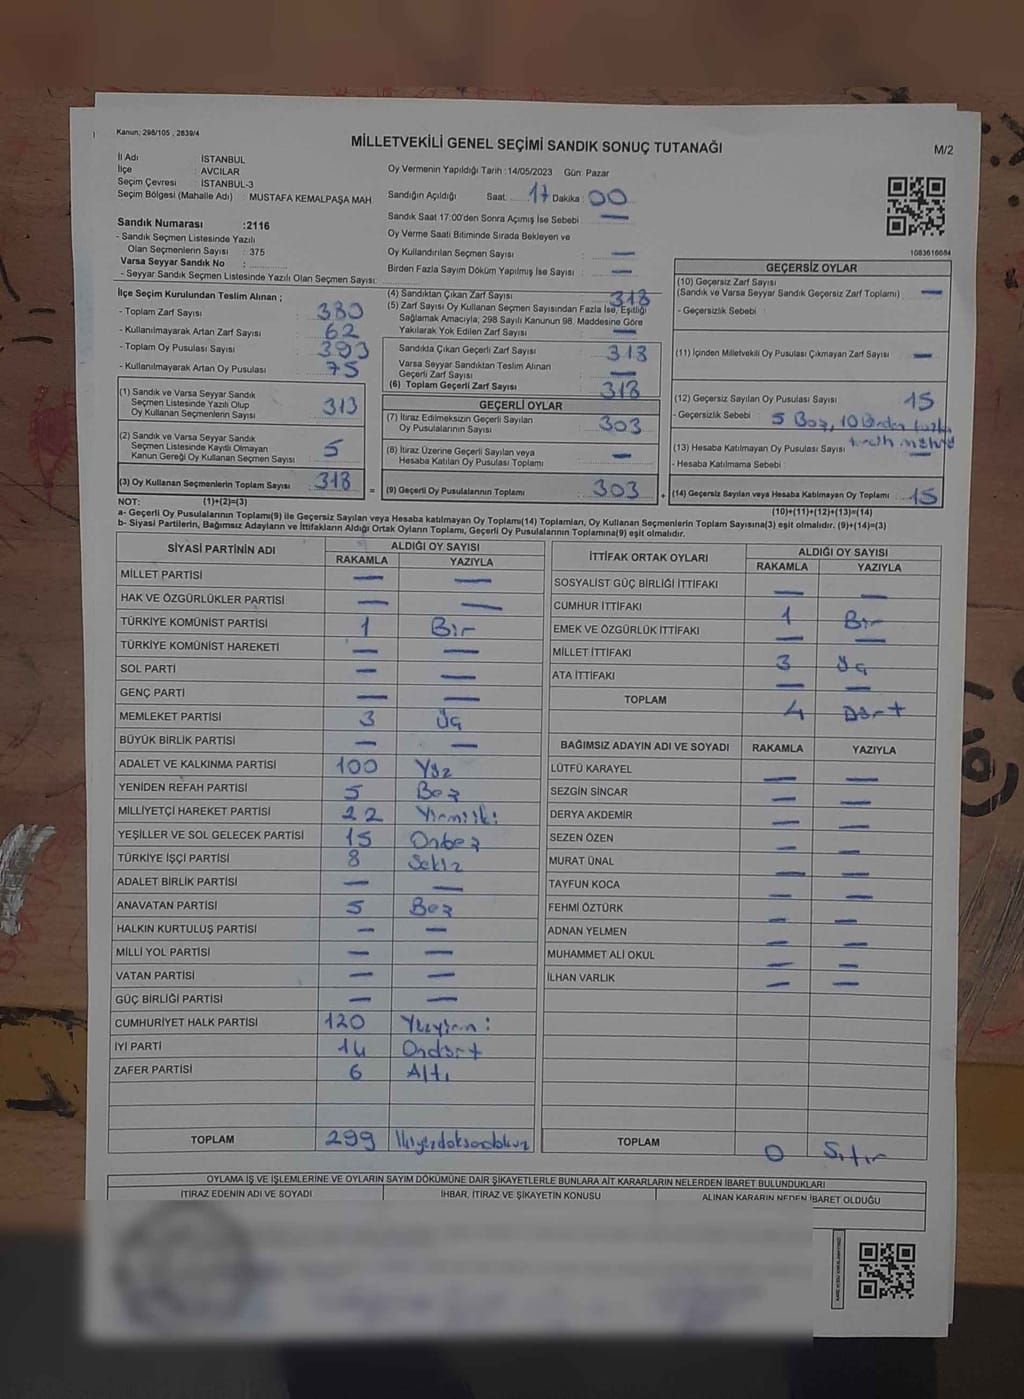 Kanun; 298/105 , 2839/4
MİLLETVEKİLİ GENEL SEÇİMİ SANDIK SONUÇ TUTANAĞI
M/2
İl Adı : İSTANBUL
İlçe : AVCILAR
Seçim Çevresi : İSTANBUL-3
Seçim Bölgesi (Mahalle Adı) : MUSTAFA KEMALPAŞA MAH
Sandık Numarası :2116
- Sandık Seçmen Listesinde Yazılı
Olan Seçmenlerin Sayısı : 375
Varsa Seyyar Sandık No :
- Seyyar Sandık Seçmen Listesinde Yazılı Olan Seçmen Sayısı:
Oy Vermenin Yapıldığı Tarih :14/05/2023 Gün: Pazar
Sandığın Açıldığı Saat 17 Dakika : 00
Sandık Saat 17:00'den Sonra Açımış İse Sebebi : —
Oy Verme Saati Bitiminde Sırada Bekleyen ve
Oy Kullandırılan Seçmen Sayısı : —
Birden Fazla Sayım Döküm Yapılmış İse Sayısı : —
1083616684
İlçe Seçim Kurulundan Teslim Alınan ;
- Toplam Zarf Sayısı : 380
- Kullanılmayarak Artan Zarf Sayısı : 62
- Toplam Oy Pusulası Sayısı : 393
- Kullanılmayarak Artan Oy Pusulası : 75
(1) Sandık ve Varsa Seyyar Sandık
Seçmen Listesinde Yazılı Olup
Oy Kullanan Seçmenlerin Sayısı : 313
(2) Sandık ve Varsa Seyyar Sandık
Seçmen Listesinde Kayıtlı Olmayan
Kanun Gereği Oy Kullanan Seçmen Sayısı : 5
(3) Oy Kullanan Seçmenlerin Toplam Sayısı : 318
(4) Sandıktan Çıkan Zarf Sayısı : 318
(5) Zarf Sayısı Oy Kullanan Seçmen Sayısından Fazla İse, Eşitliği
Sağlamak Amacıyla; 298 Sayılı Kanunun 98. Maddesine Göre
Yakılarak Yok Edilen Zarf Sayısı : —
Sandıkta Çıkan Geçerli Zarf Sayısı : 318
Varsa Seyyar Sandıktan Teslim Alınan
Geçerli Zarf Sayısı : —
(6) Toplam Geçerli Zarf Sayısı : 318
GEÇERLİ OYLAR
(7) İtiraz Edilmeksizin Geçerli Sayılan
Oy Pusulalarının Sayısı : 303
(8) İtiraz Üzerine Geçerli Sayılan veya
Hesaba Katılan Oy Pusulası Toplamı : —
= (9) Geçerli Oy Pusulalarının Toplamı : 303
GEÇERSİZ OYLAR
(10) Geçersiz Zarf Sayısı
(Sandık ve Varsa Seyyar Sandık Geçersiz Zarf Toplamı) : —
- Geçersizlik Sebebi :
(11) İçinden Milletvekili Oy Pusulası Çıkmayan Zarf Sayısı : —
(12) Geçersiz Sayılan Oy Pusulası Sayısı : 15
- Geçersizlik Sebebi : 5 Boş, 10 Birden fazla
tercih
(13) Hesaba Katılmayan Oy Pusulası Sayısı : —
- Hesaba Katılmama Sebebi :
+ (14) Geçersiz Sayılan veya Hesaba Katılmayan Oy Toplamı : 15
NOT: (1)+(2)=(3)
(10)+(11)+(12)+(13)=(14)
a- Geçerli Oy Pusulaları Toplamı(9) ile Geçersiz Sayılan veya Hesaba katılmayan Oy Toplamı(14) Toplamları, Oy Kullanan Seçmenlerin Toplam Sayısına(3) eşit olmalıdır. (9)+(14)=(3)
b- Siyasi Partilerin, Bağımsız Adayların ve İttifakların Aldığı Ortak Oyların Toplamı, Geçerli Oy Pusulalarının Toplamına(9) eşit olmalıdır.
SİYASİ PARTİNİN ADI ALDIĞI OY SAYISI
RAKAMLA YAZIYLA
MİLLET PARTİSİ — —
HAK VE ÖZGÜRLÜKLER PARTİSİ — —
TÜRKİYE KOMÜNİST PARTİSİ 1 Bir
TÜRKİYE KOMÜNİST HAREKETİ — —
SOL PARTİ — —
GENÇ PARTİ — —
MEMLEKET PARTİSİ 3 Üç
BÜYÜK BİRLİK PARTİSİ — —
ADALET VE KALKINMA PARTİSİ 100 Yüz
YENİDEN REFAH PARTİSİ 5 Beş
MİLLİYETÇİ HAREKET PARTİSİ 22 Yirmiiki
YEŞİLLER VE SOL GELECEK PARTİSİ 15 Onbeş
TÜRKİYE İŞÇİ PARTİSİ 8 Sekiz
ADALET BİRLİK PARTİSİ — —
ANAVATAN PARTİSİ 5 Beş
HALKIN KURTULUŞ PARTİSİ — —
MİLLİ YOL PARTİSİ — —
VATAN PARTİSİ — —
GÜÇ BİRLİĞİ PARTİSİ — —
CUMHURİYET HALK PARTİSİ 120 Yüzyirmi
İYİ PARTİ 14 Ondört
ZAFER PARTİSİ 6 Altı
TOPLAM 299 İkiyüzdoksandokuz
İTTİFAK ORTAK OYLARI ALDIĞI OY SAYISI
RAKAMLA YAZIYLA
SOSYALİST GÜÇ BİRLİĞİ İTTİFAKI — —
CUMHUR İTTİFAKI 1 Bir
EMEK VE ÖZGÜRLÜK İTTİFAKI — —
MİLLET İTTİFAKI 3 Üç
ATA İTTİFAKI — —
TOPLAM 4 Dört
BAĞIMSIZ ADAYIN ADI VE SOYADI RAKAMLA YAZIYLA
LÜTFÜ KARAYEL — —
SEZGİN SİNCAR — —
DERYA AKDEMİR — —
SEZEN ÖZEN — —
MURAT ÜNAL — —
TAYFUN KOCA — —
FEHMİ ÖZTÜRK — —
ADNAN YELMEN — —
MUHAMMET ALİ OKUL — —
İLHAN VARLIK — —
TOPLAM 0 Sıfır
OYLAMA İŞ VE İŞLEMLERİNE VE OYLARIN SAYIM DÖKÜMÜNE DAİR ŞİKAYETLERLE BUNLARA AİT KARARLARIN NELERDEN İBARET BULUNDUKLARI
İTİRAZ EDENİN ADI VE SOYADI İHBAR, İTİRAZ VE ŞİKAYETİN KONUSU ALINAN KARARIN NEDEN İBARET OLDUĞU